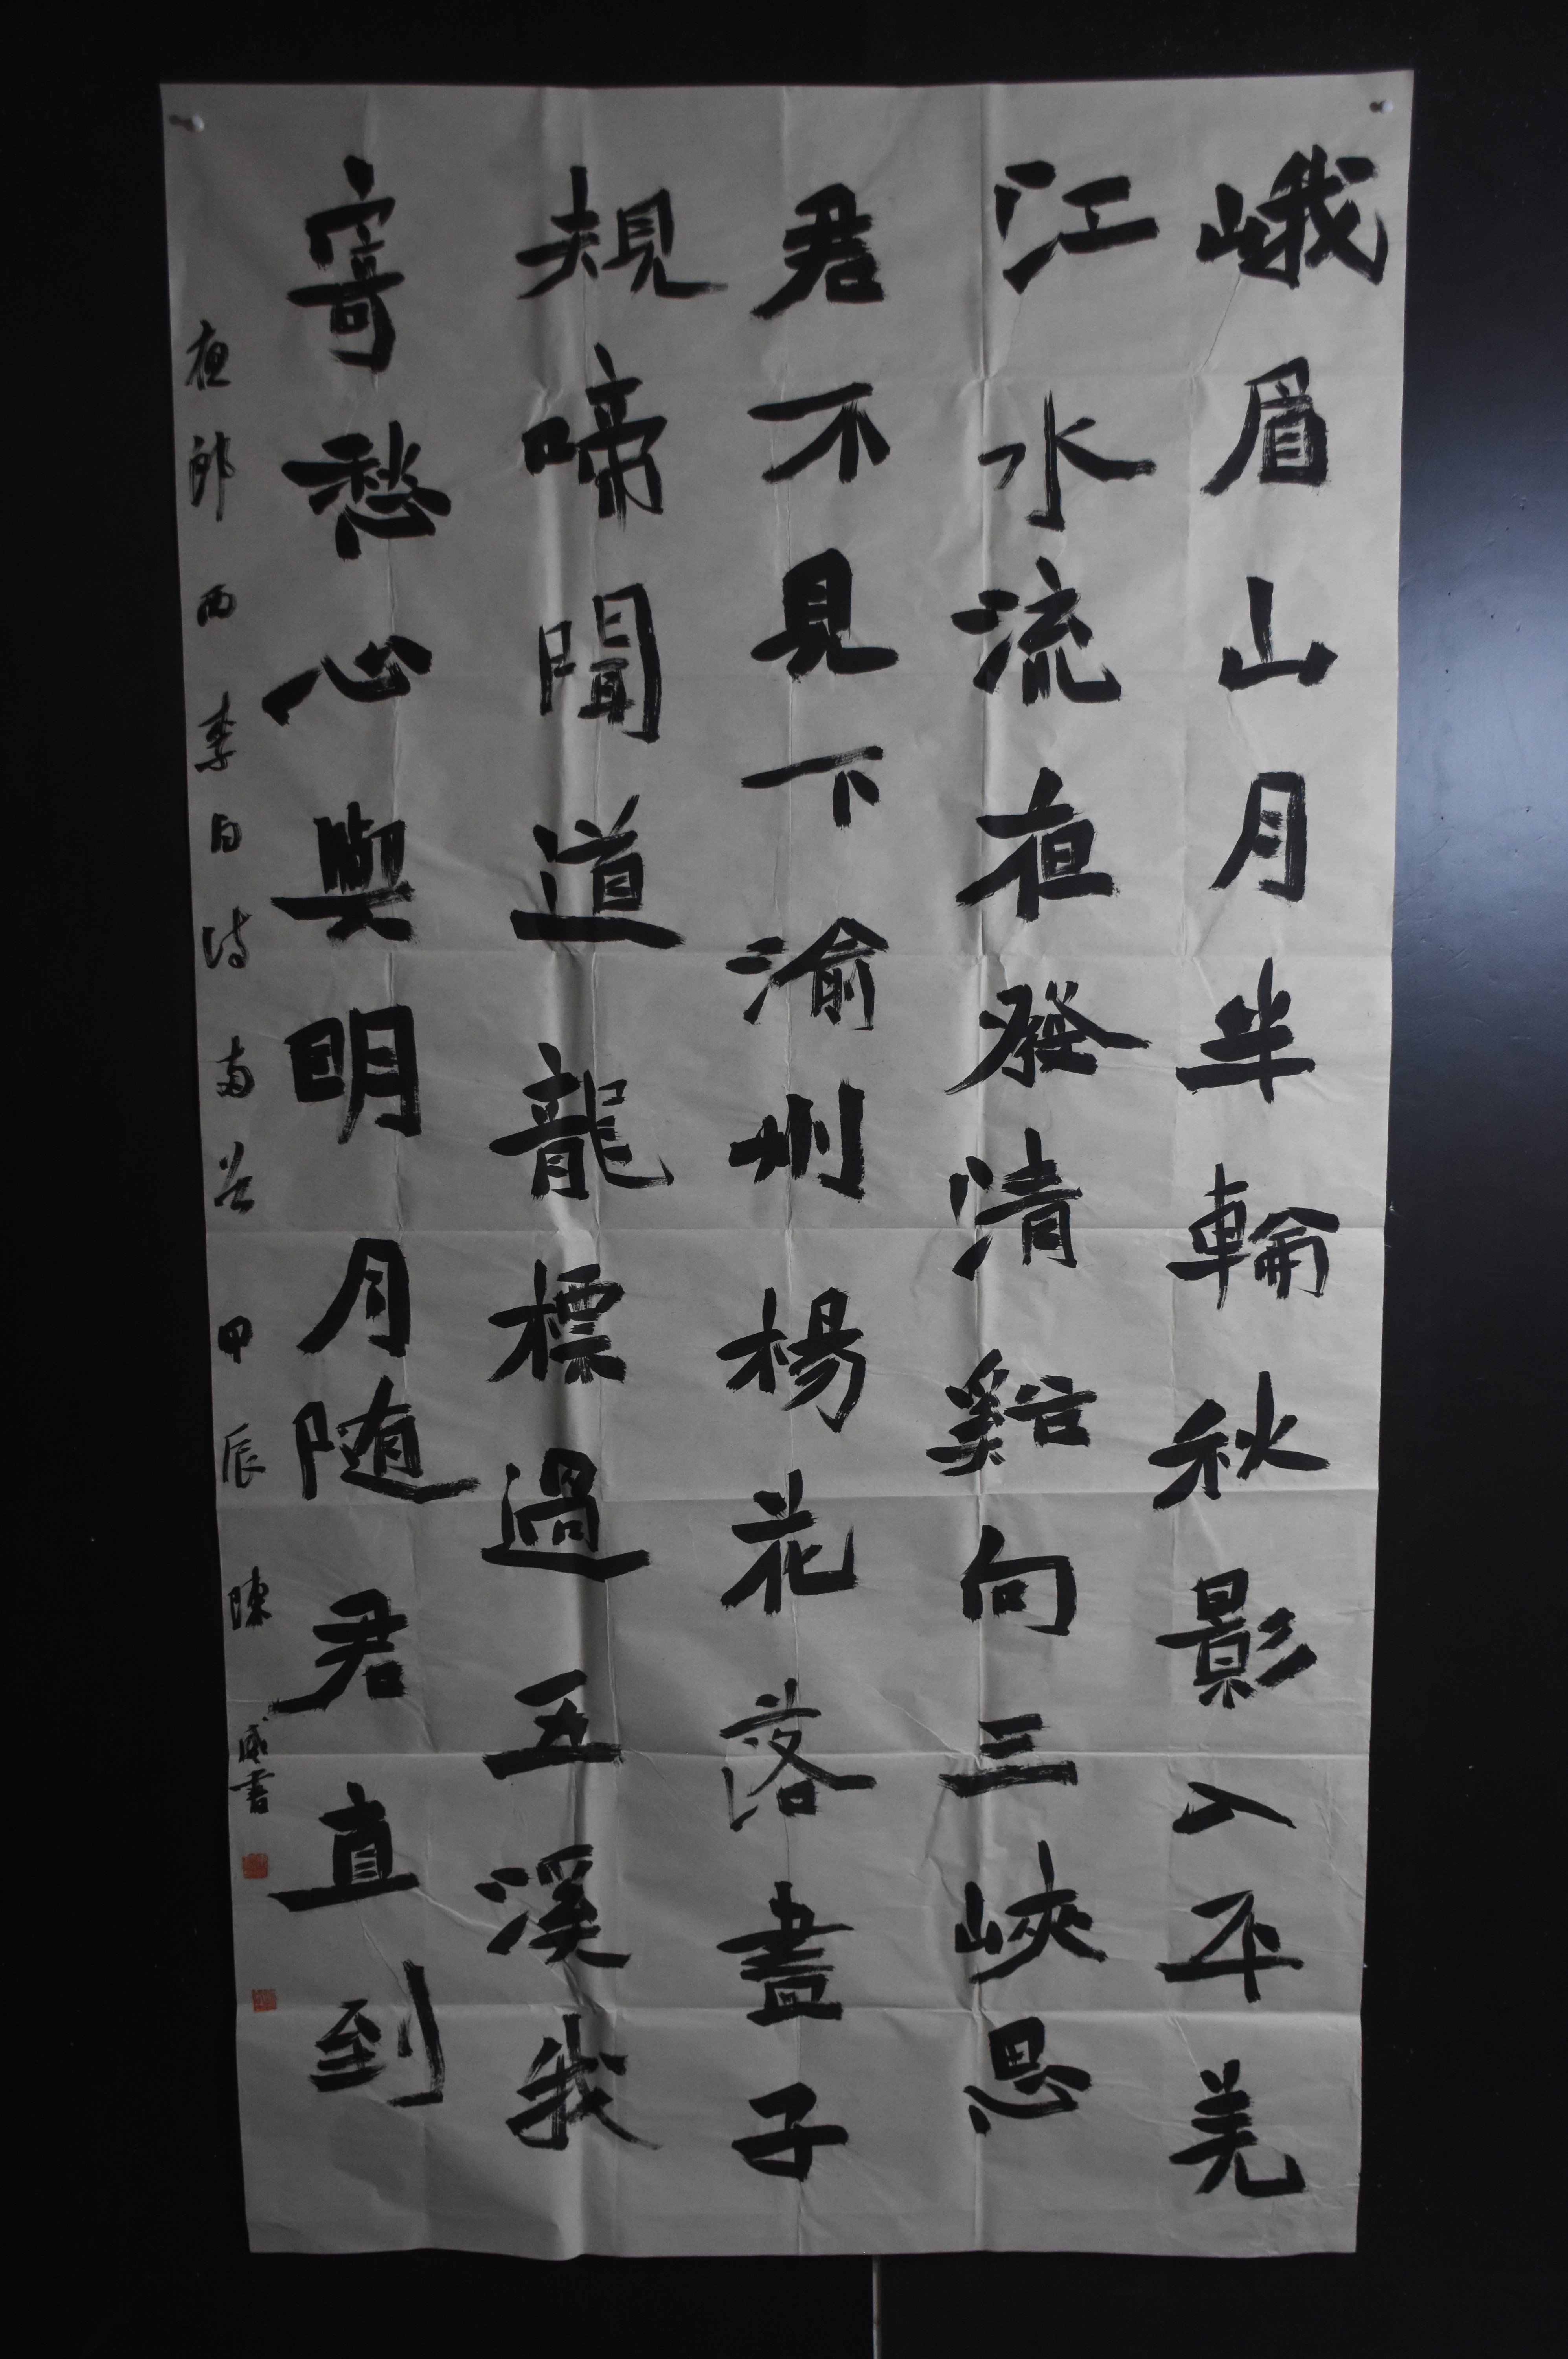 峨眉山月半輪秋影入平羌
江水流夜發清谿向三峽思
君不見下渝州楊花落盡子
規啼聞道龍標過五溪我
寄愁心與明月随君直到
夜郎西李白詩兩首甲辰陳威書